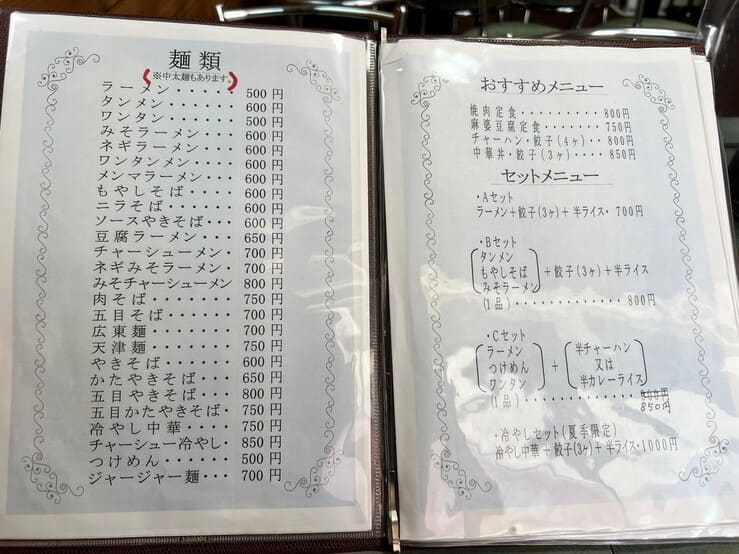 麺類
(※中太麺もあります。)
ラーメン・・・・・・500円
タンメン・・・・・・600円
ワンタン・・・・・・500円
みそラーメン・・・・600円
ネギラーメン・・・・600円
ワンタンメン・・・・600円
メンマラーメン・・・600円
もやしそば・・・・・600円
ニラそば・・・・・・600円
ソースやきそば・・・600円
豆腐ラーメン・・・・650円
チャーシューメン・・700円
ネギみそラーメン・・700円
みそチャーシューメン 800円
肉そば・・・・・・・750円
五目そば・・・・・・700円
広東麺・・・・・・・700円
天津麺・・・・・・・750円
やきそば・・・・・・600円
かたやきそば・・・・650円
五目やきそば・・・・800円
五目かたやきそば・・750円
冷やし中華・・・・・750円
チャーシュー冷やし・850円
つけめん・・・・・・500円
ジャージャー麺・・・700円
おすすめメニュー
焼肉定食・・・・・・・・・800円
麻婆豆腐定食・・・・・・・750円
チャーハン・餃子(4ヶ)・・800円
中華丼・餃子(3ヶ)・・・・850円
セットメニュー
・Aセット
ラーメン+餃子(3ヶ)+半ライス・700円
・Bセット
タンメン
もやしそば +餃子(3ヶ)+半ライス
みそラーメン
(1品)・・・・・・・・・・・・・800円
・Cセット
ラーメン 半チャーハン
つけめん + 又は
ワンタン 半カレーライス
(1品)・・・・・・・・・・・・
850円
・冷やしセット(夏季限定)
冷やし中華+餃子(3ヶ)+半ライス・1000円